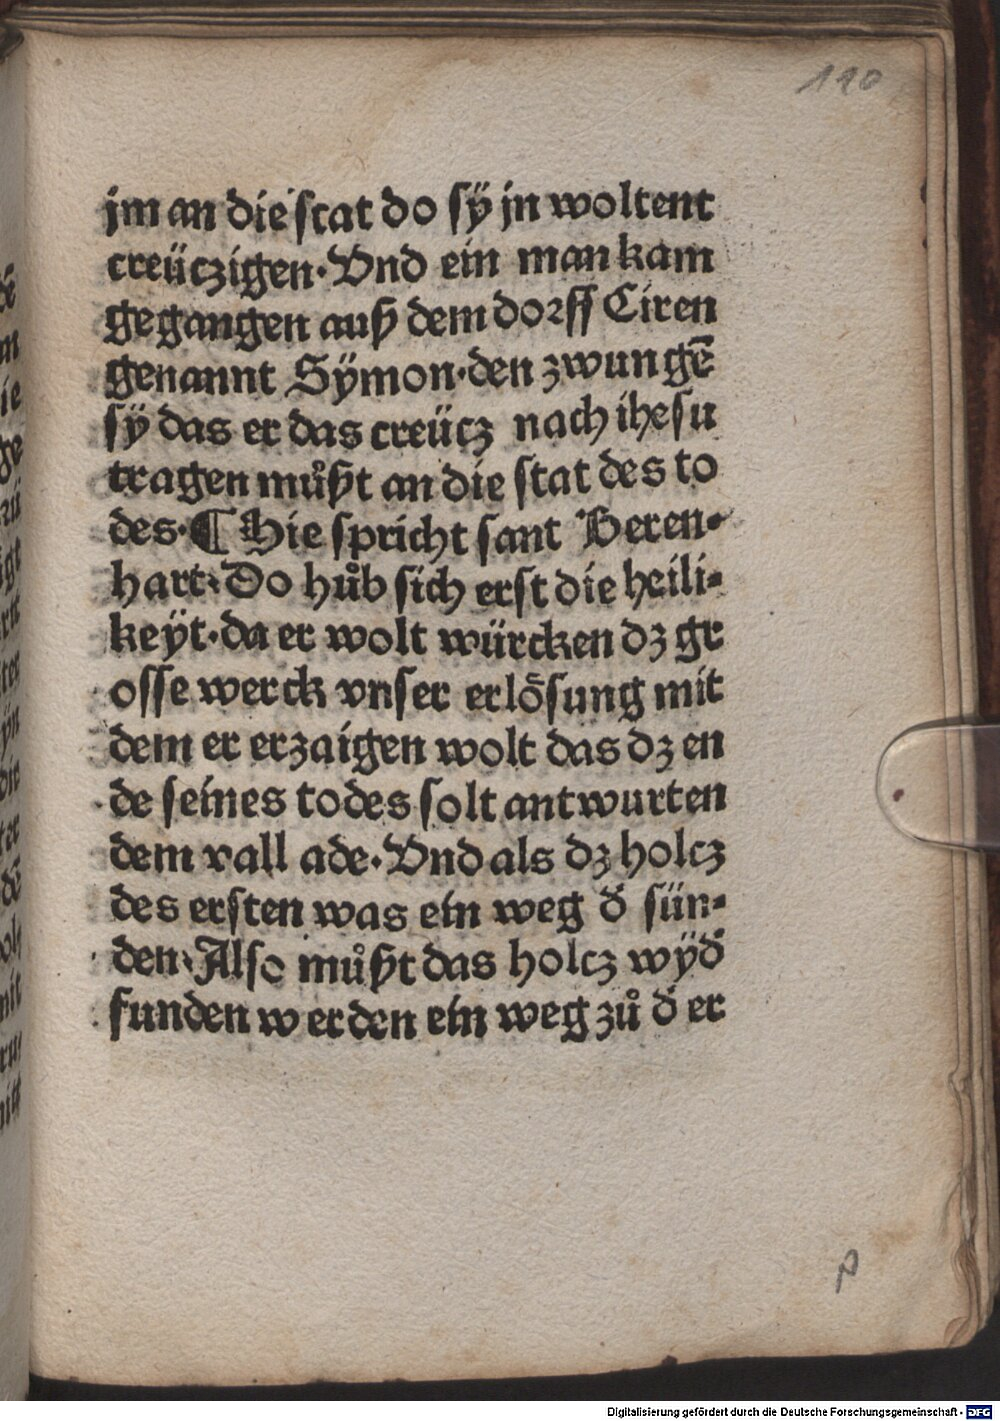 110
jm an die stat do sÿ jn woltent
creüczigen·Vnd ein man kam
gegangen auß dem dorff Ciren
genannt Sÿmon·den zwungē
sÿ das er das creücz nach ihesu
tragen můßt an die stat des to
des·¶ Hie spricht sant Beren⸗
hart·Do hůb sich erst die heili⸗
keÿt·da er wolt würcken dz gr
osse werck vnser erlösung mit
dem er erzaigen wolt das dz en
de seines todes solt antwurten
dem vall ade·Vnd als dz holcz
des ersten was ein weg d̕ sün⸗
den·Also můßt das holcz wÿd̕
funden werden ein weg zů d̕ er
Digitalisierung gefördert durch die Deutsche Forschungsgemeinschaft - DFG